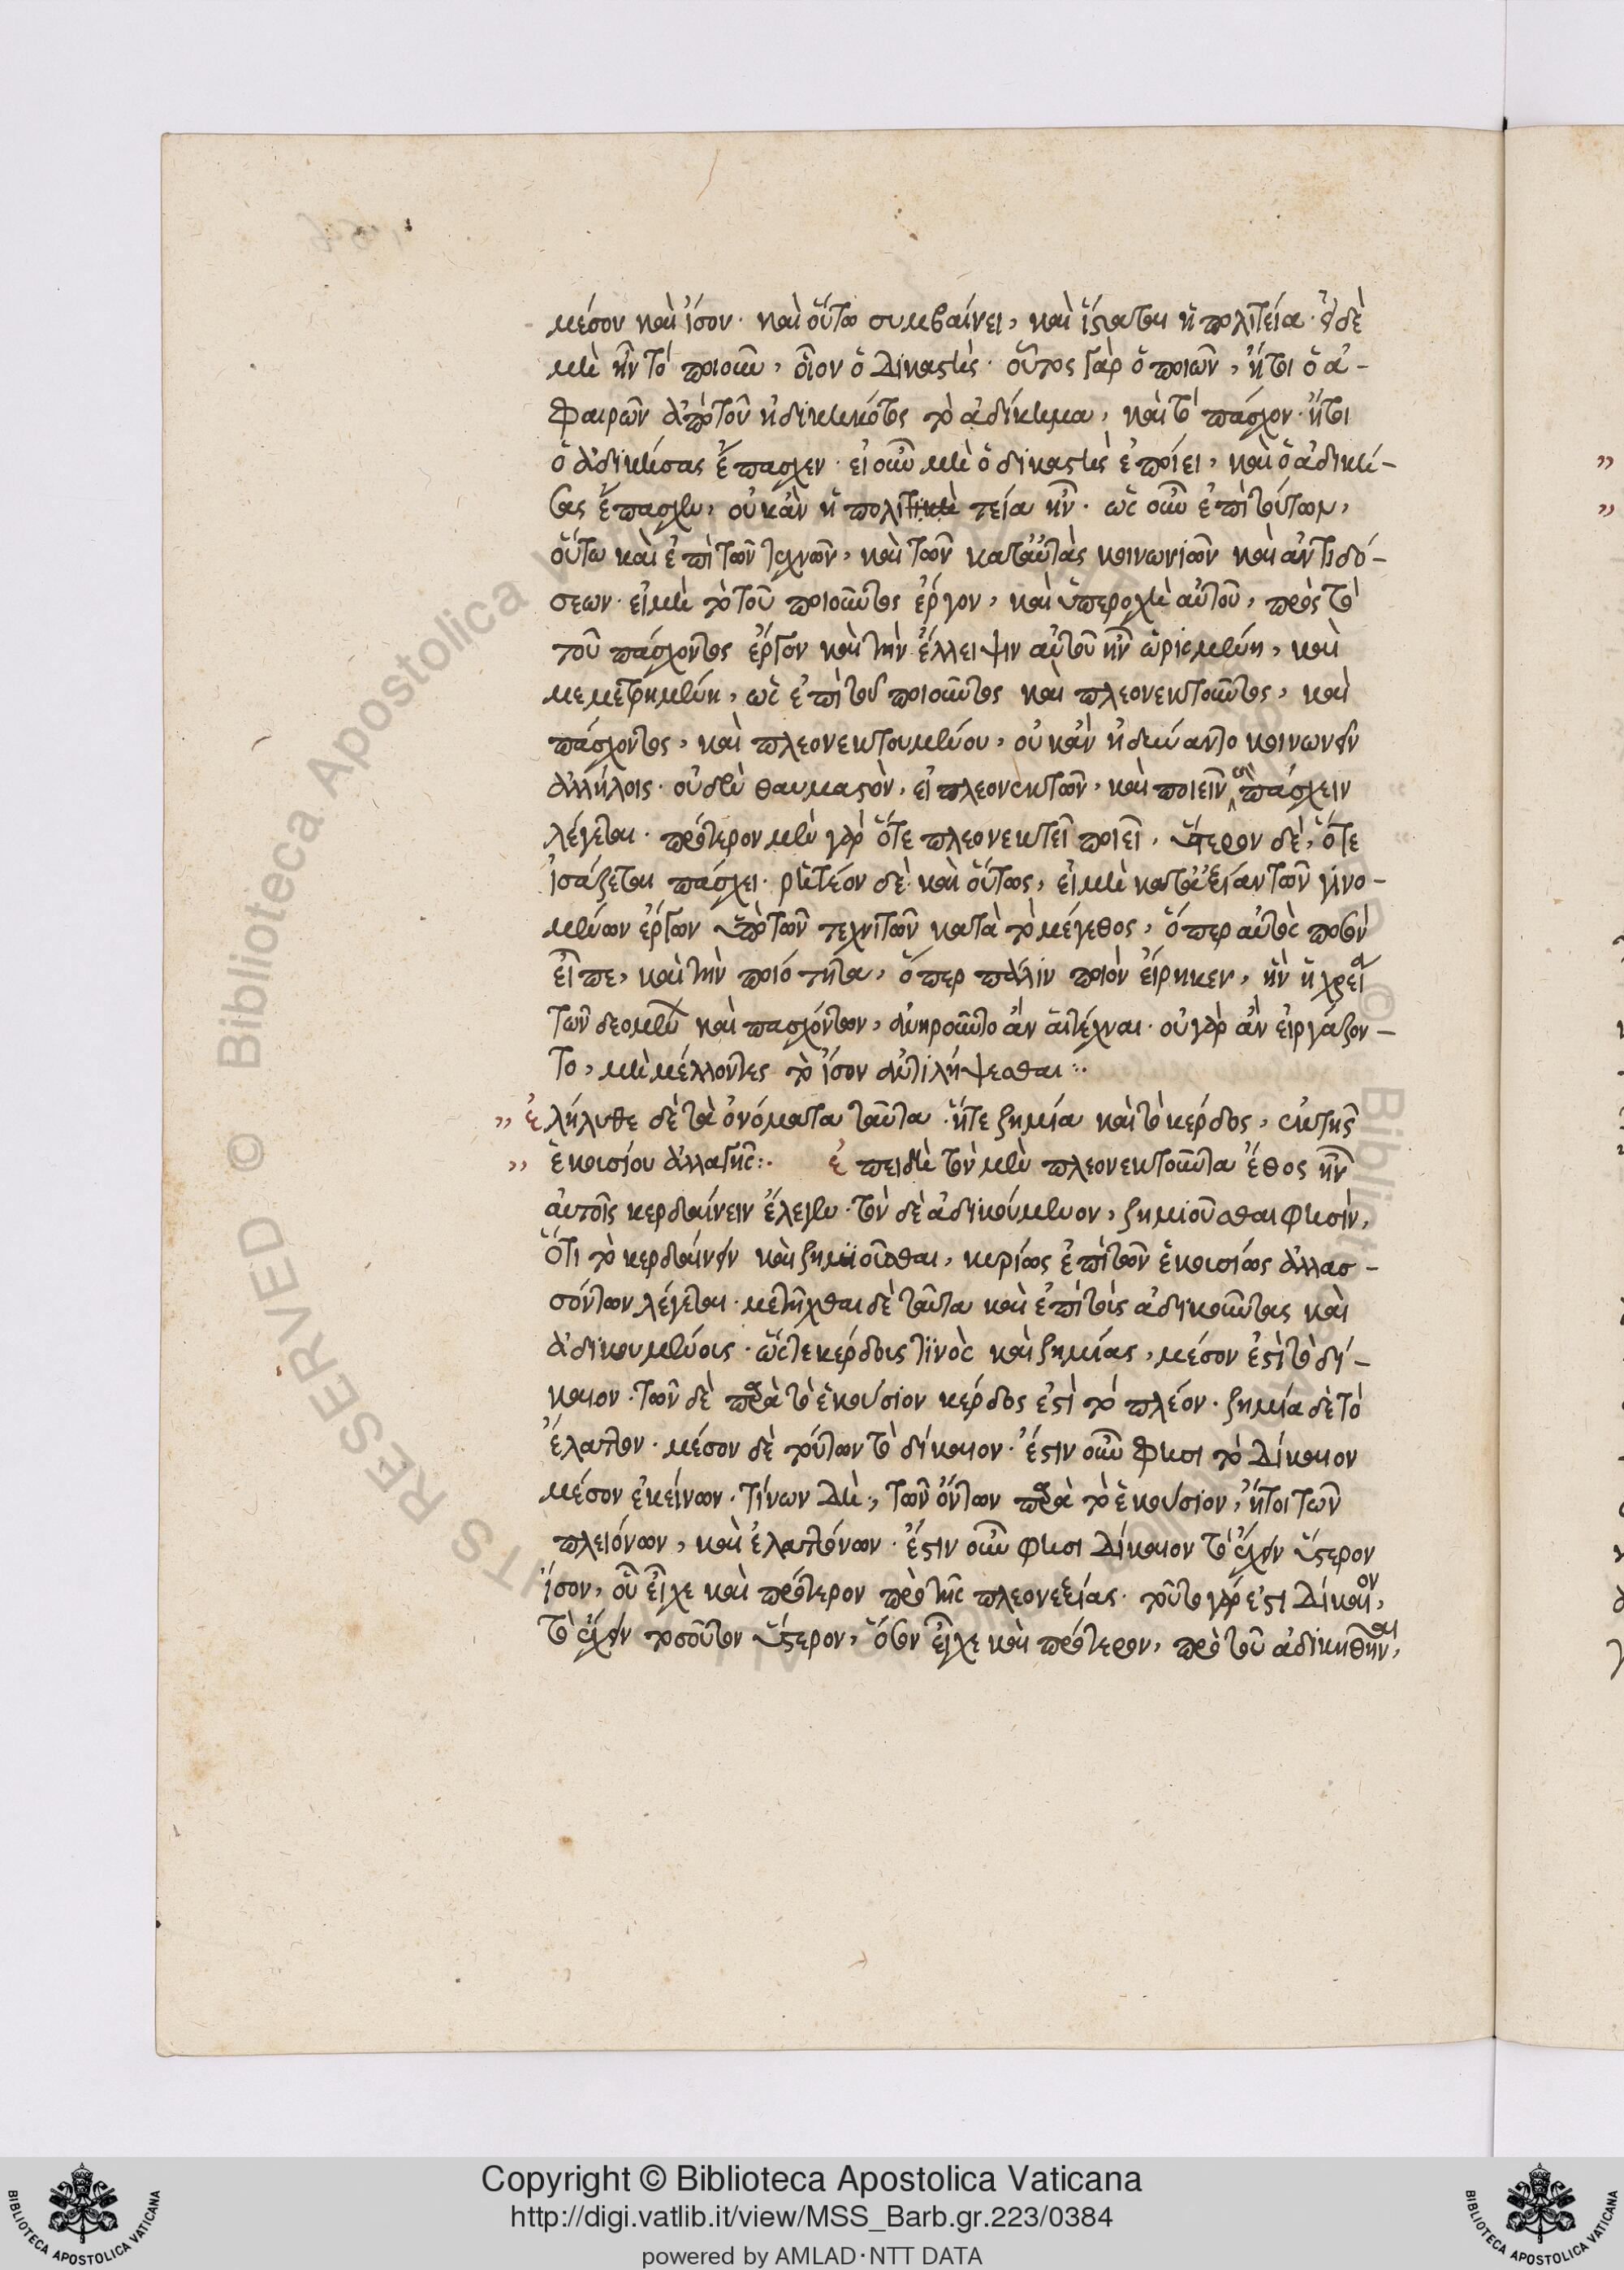 μέσον καὶ ἴσον· καὶ οὕτω συμβαίνει, καὶ ἵσταται ἡ πολιτεία· εἰ δὲ
μὴ ἦν τὸ ποιοῦν, οἷον ὁ δικαστὴς· οὗτος γὰρ ὁ ποιῶν, ἤτοι ὁ ἀ-
φαιρῶν ἀπὸ τοῦ ἠδικηκότος τὸ ἀδίκημα, καὶ τὸ πάσχον· ἤτοι
ὁ ἀδικήσας ἔπασχεν· εἰ οὖν μὴ ὁ δικαστὴς ἐποίει, καὶ ὁ ἀδική-
σας ἔπασχεν, οὐκ ἂν ἡ πολιτεία ἦν· ὡς οὖν ἐπὶ τούτων,
οὕτω καὶ ἐπὶ τῶν τεχνῶν, καὶ τῶν κατ' αὐτὰς κοινωνιῶν καὶ ἀντιδό-
σεων· εἰ μὴ τὸ τοῦ ποιοῦντος ἔργον, καὶ ὑπεροχὴ αὐτοῦ, πρὸς τὸ
τοῦ πάσχοντος ἔργον καὶ τὴν ἔλλειψιν αὐτοῦ ἦν ὡρισμένη, καὶ
μεμετρημένη, ὡς ἐπὶ τοῦ ποιοῦντος καὶ πλεονεκτοῦντος, καὶ
πάσχοντος, καὶ πλεονεκτουμένου, οὐκ ἂν ἠδύναντο κοινωνεῖν
ἀλλήλοις· οὐδὲν θαυμαστὸν, εἰ πλεονεκτῶν, καὶ ποιεῖν καὶ πάσχειν
λέγεται· πρότερον μὲν γὰρ ὅτε πλεονεκτεῖ ποιεῖ, ὕστερον δὲ, ὅτε
ἰσάζεται πάσχει· ῥητέον δὲ καὶ οὕτως, εἰ μὴ κατ' ἀξίαν τῶν γινο-
μένων ἔργων ὑπὸ τῶν τεχνιτῶν κατὰ τὸ μέγεθος, ὅπερ αὐτὸς ποσὸν
εἶπε, καὶ τὴν ποιότητα, ὅπερ πάλιν ποιὸν εἴρηκεν, ἦν ἡ χρεία
τῶν δεομένων καὶ πασχόντων, ἀνῃροῦντο ἂν αἱ τέχναι· οὐ γὰρ ἂν εἰργάζον-
το, μὴ μέλλοντες τὸ ἴσον ἀντιλήψεσθαι :·
" ἐλήλυθε δὲ τὰ ὀνόματα ταῦτα· ἥτε ζημία καὶ τὸ κέρδος, ἐκ τῆς
" ἑκουσίου ἀλλαγῆς :· ἐπειδὴ τὸν μὲν πλεονεκτοῦντα ἔθος ἦν
αὐτοῖς κερδαίνειν ἔλεγεν· τὸν δὲ ἀδικούμενον, ζημιοῦσθαι φησὶν,
ὅτι τὸ κερδαίνειν καὶ ζημιοῦσθαι, κυρίως ἐπὶ τῶν ἑκουσίως ἀλλασ-
σόντων λέγεται· μετῆχθαι δὲ ταῦτα καὶ ἐπὶ τοὺς ἀδικοῦντας καὶ
ἀδικουμένους· ὥστε κέρδους τινὸς καὶ ζημίας, μέσον ἐστὶ τὸ δί-
καιον· τῶν δὲ παρὰ τὸ ἑκούσιον κέρδος ἐστὶ τὸ πλέον· ζημία δὲ τὸ
ἔλαττον· μέσον δὲ τούτων τὸ δίκαιον· ἔστιν οὖν φησι τὸ δίκαιον
μέσον ἐκείνων· τίνων δὴ; τῶν ὄντων παρὰ τὸ ἑκούσιον, ἤτοι τῶν
πλειόνων, καὶ ἐλαττόνων· ἔστιν οὖν φησι δίκαιον τὸ ἔχειν ὕστερον
ἴσον, οὗ εἶχε καὶ πρότερον πρὸ τῆς πλεονεξίας· τοῦτο γὰρ ἐστι δίκαιον,
τὸ ἔχειν τοσοῦτον ὕστερον, ὅσον εἶχε καὶ πρότερον, πρὸ τοῦ ἀδικηθῆναι,
Copyright © Biblioteca Apostolica Vaticana
http://digi.vatlib.it/view/MSS_Barb.gr.223/0384
powered by AMLAD·NTT DATA